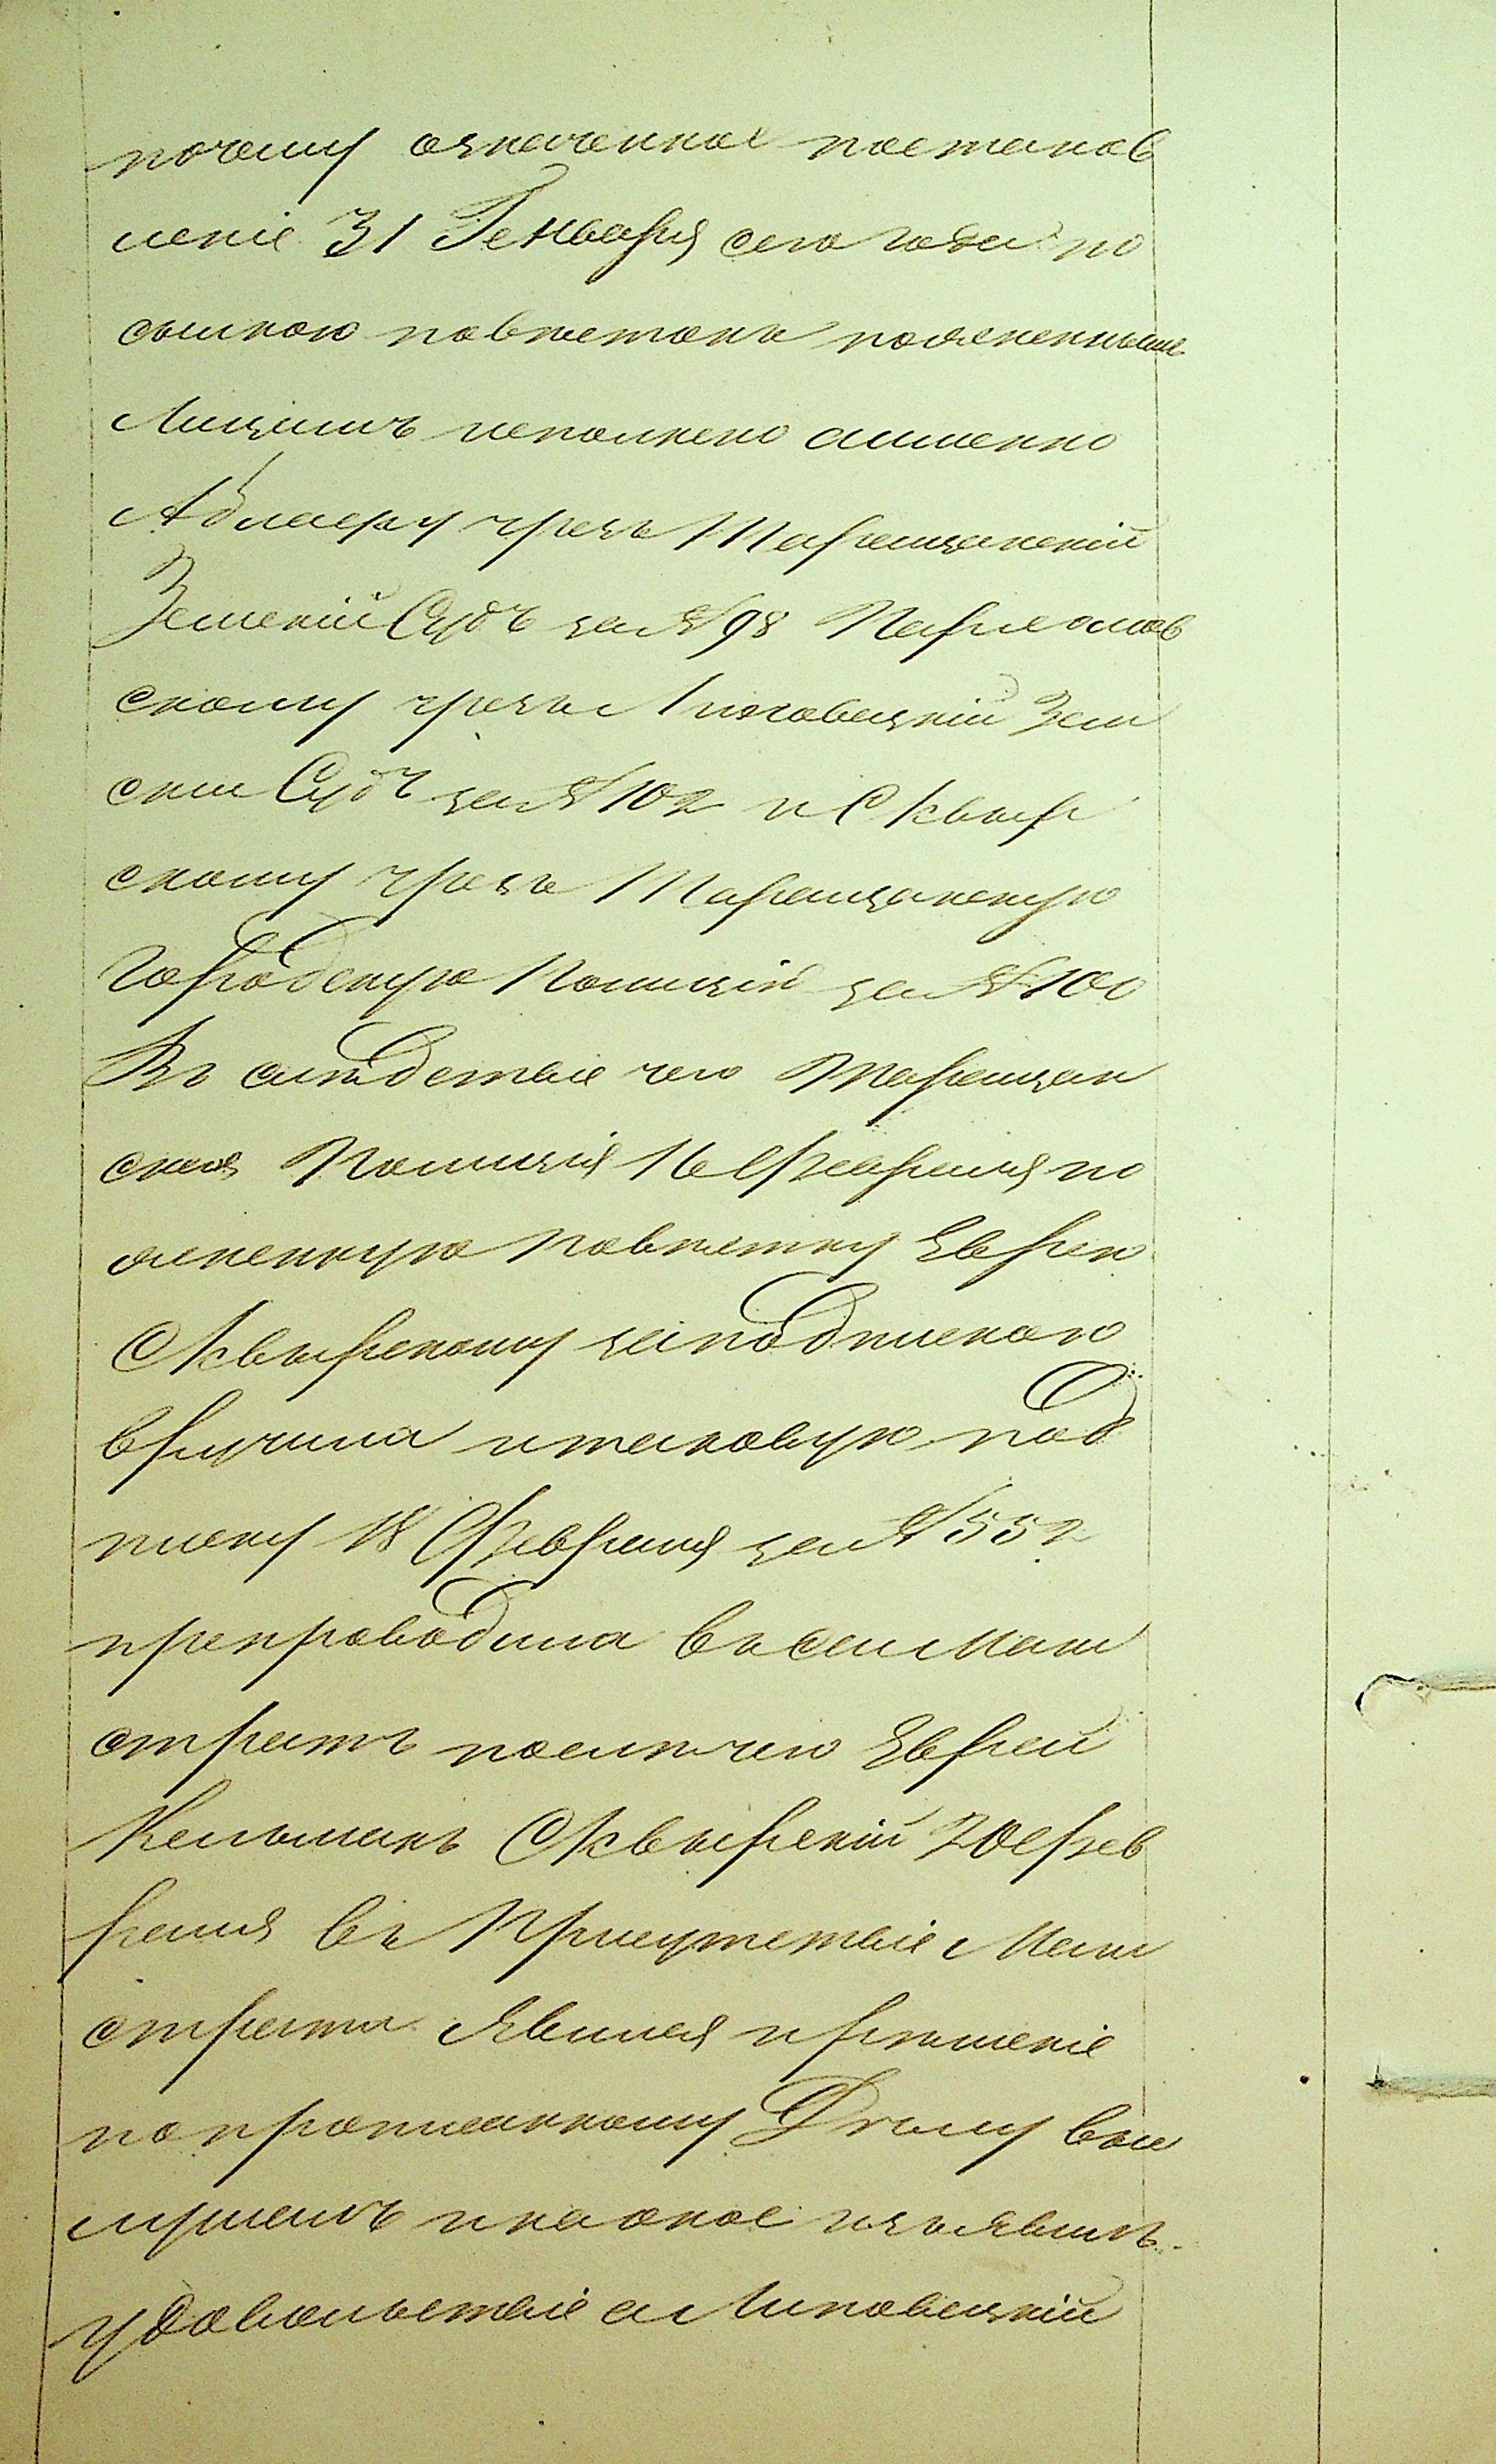 почему означенное постанов
леніе 31 Генваря сего года по
сылкою повѣстокъ поясненнымъ
Лицамъ исполнено а именно
Абмееру чрезъ Таращанскій
Земскій Судъ за № 98
скому чрезъ Липовецкій Зем
скій Судъ за № 102 и Сквыр
скому чрезъ Таращанскую
Городскую Полицію за № 100
Въ слѣдствіе чего Таращан
ская Полиція 16 Февраля по
ясненную повѣстку Еврею
Сквырскому заподпискою
вручила и таковую под
писку 18 Февраля за № 552
препроводила въ сей Маги
стратъ после чего Еврей
Кельманъ Сквырскій 20 Фев
раля въ Присутствіе Маги
страта явился и рѣшеніе
по прописанному Дѣлу вы
слушалъ и на оное изъявилъ
удовольствіе а Липовецкій